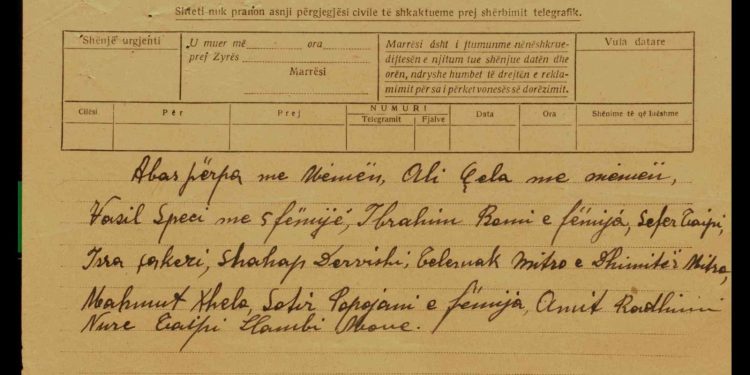 Shteti nuk pranon asnji përgjegjësi civile të shkaktueme prej shërbimit telegrafik.
Shënjë urgjenti
U muer më ora
prej Zyrës
Marrësi
Marrësi âsht i ftumunme nënëshkrue-
dijtesën e njitum tue shënjue datën dhe
orën, ndryshe humbet të drejtën e rekla-
mimit për sa i përket vonesës së dorëzimit.
Vula datare
Cilësi Për Prej NUMURI Telegramit Fjalve Data Ora Shënime të që lùeshme
Abas përpa me nënën, Ali Çela me nënën,
Vasil Speci me 5 fëmijë, Ibrahim Bomi e fëmijä, Sefer Taipi,
Isra çakezi, Shahap Dervishi, Telemak Mitro e Dhimitër Mitro,
Mahmut Xhelo, Sotir Popojani e fëmijä, Amit Radhimi
Nure Taipi Llambi